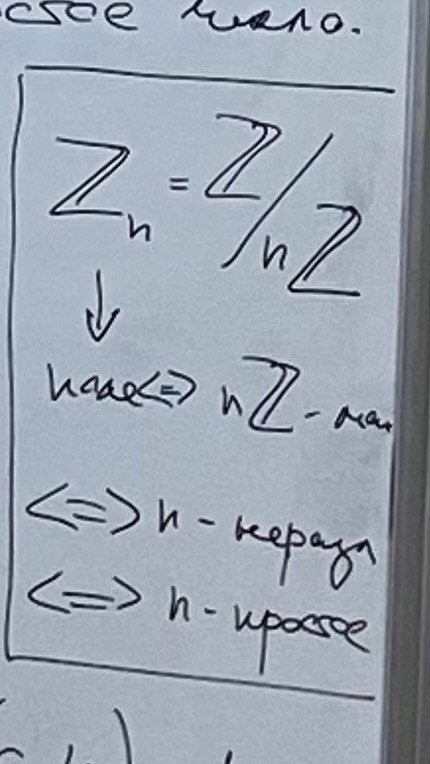 число.
ℤₙ = ℤ/nℤ
↓
поле <=> nℤ - мак
<=> n - неразл
<=> n - простое